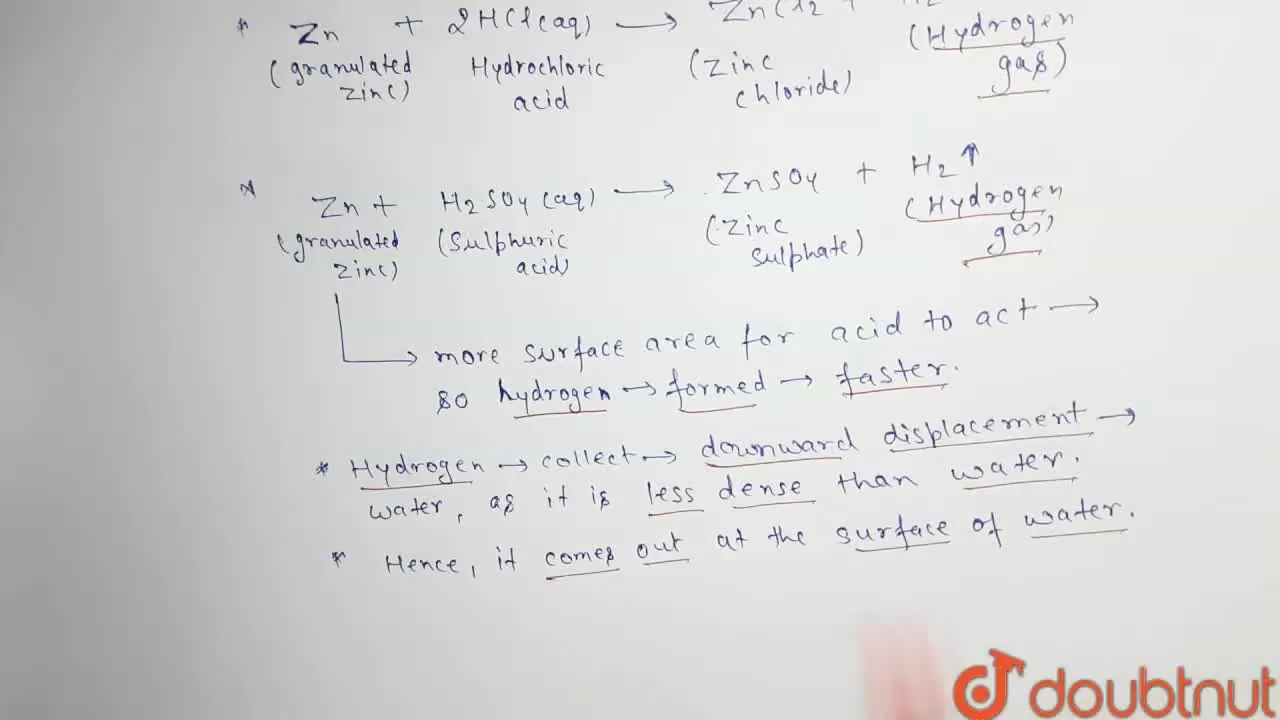 * Zn + 2HCl(aq) → ZnCl2 + H2
(granulated zinc) Hydrochloric acid (Zinc chloride) (Hydrogen gas)
* Zn + H2SO4(aq) → ZnSO4 + H2↑
(granulated zinc) (Sulphuric acid) (Zinc sulphate) (Hydrogen gas)
→ more surface area for acid to act →
so hydrogen → formed → faster.
* Hydrogen → collect → downward displacement →
water, as it is less dense than water.
* Hence, it comes out at the surface of water.
doubtnut